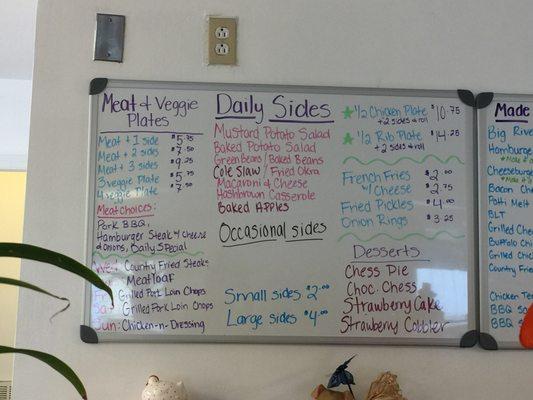 Meat & Veggie
Plates
Meat + 1 side $5.75
Meat + 2 sides $7.50
Meat + 3 sides $9.25
3 veggie Plate $5.75
4 veggie Plate $7.50
Meat choices:
Pork BBQ,
Hamburger Steak w/ cheese
& onions, Daily Special
Wed: Country Fried Steak
Meatloaf
Fri: Grilled Pork Loin Chops
Grilled Pork Loin Chops
Sun: Chicken-n-Dressing
Daily Sides
Mustard Potato Salad
Baked Potato Salad
Green Beans / Baked Beans
Cole Slaw / Fried Okra
Macaroni & Cheese
Hashbrown Casserole
Baked Apples
Occasional sides
Small sides $2.00
Large sides $4.00
1/2 Chicken Plate $10.75
+ 2 sides & roll
1/2 Rib Plate $14.25
+ 2 sides & roll
French Fries $2.00
w/ cheese $2.75
Fried Pickles $4.00
Onion Rings $3.25
Desserts
Chess Pie
Choc. Chess
Strawberry Cake
Strawberry Cobbler
Made
Big River
Hamburge
Cheeseburg
Bacon Chee
Patti Melt
BLT
Grilled Chee
Buffalo Chic
Grilled Chic
Country Frie
Chicken Ten
BBQ Sa
BBQ
BBQ S